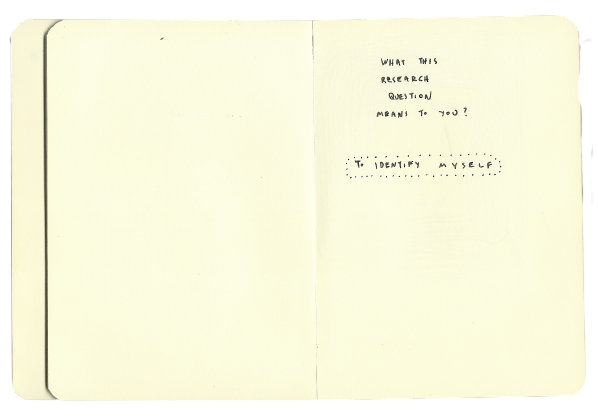 WHAT THIS
RESEARCH
QUESTION
MEANS TO YOU?
TO IDENTIFY MYSELF